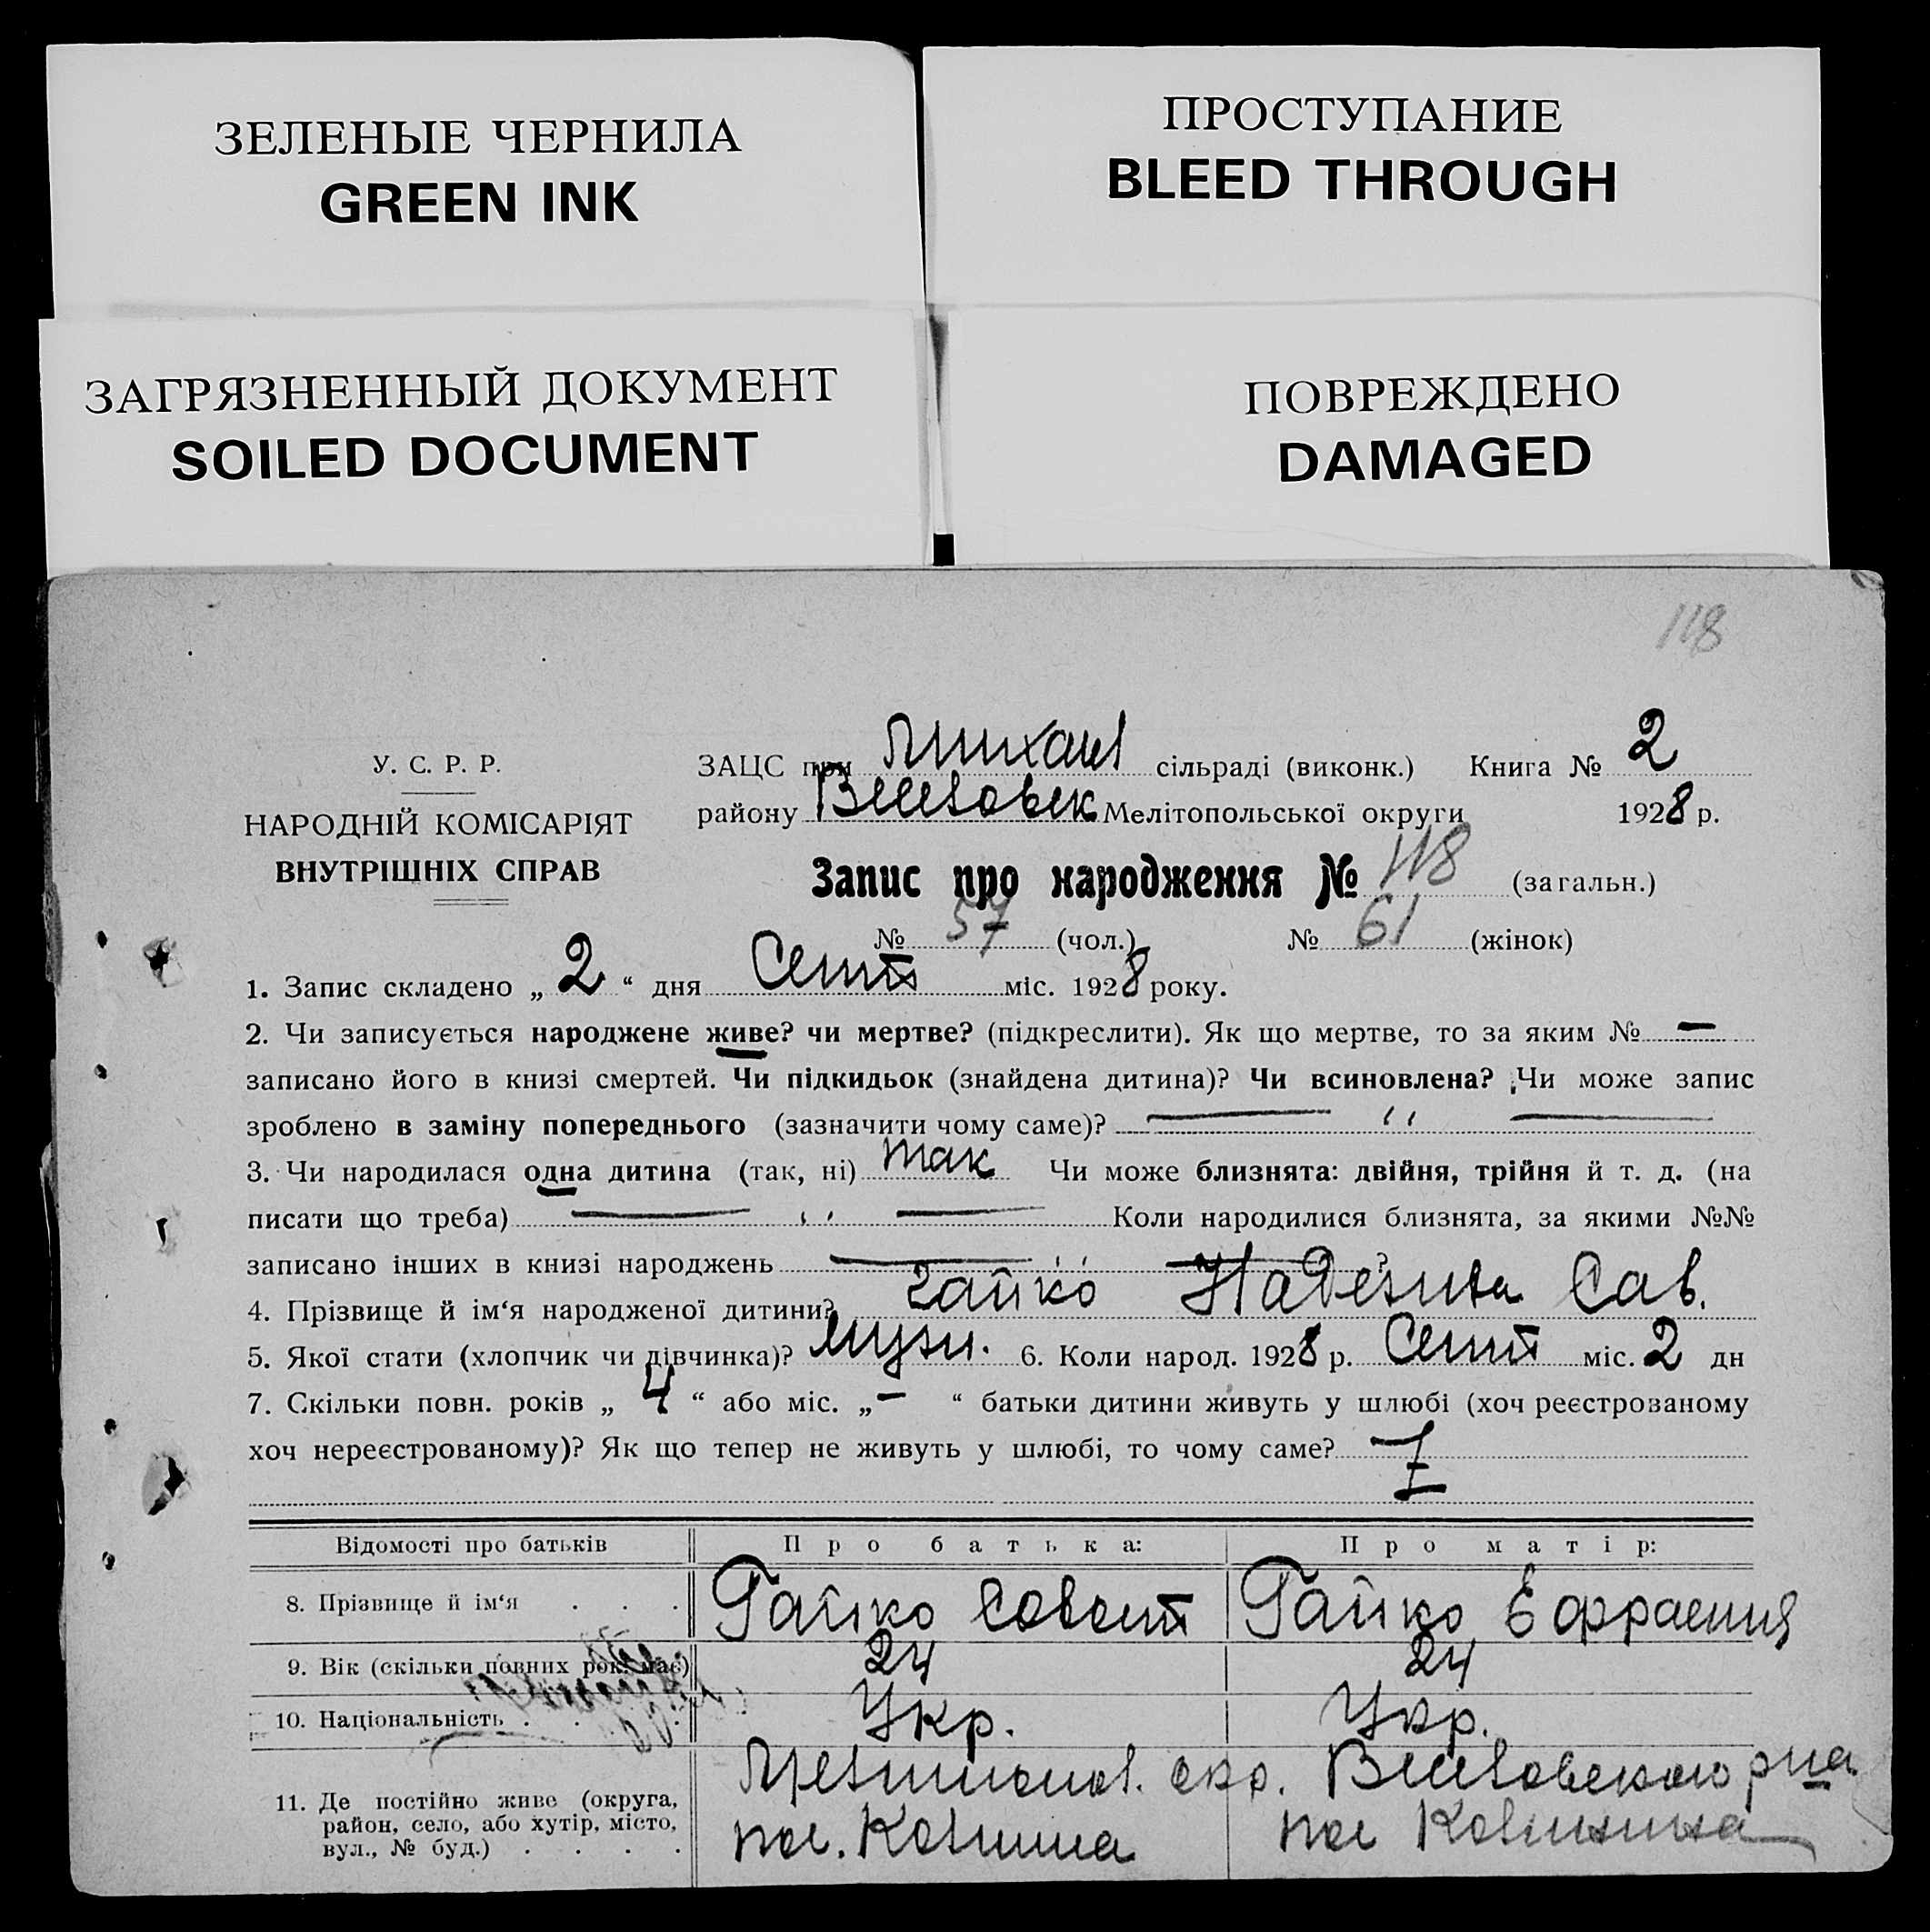 ЗЕЛЕНЫЕ ЧЕРНИЛА
GREEN INK
ПРОСТУПАНИЕ
BLEED THROUGH
ЗАГРЯЗНЕННЫЙ ДОКУМЕНТ
SOILED DOCUMENT
ПОВРЕЖДЕНО
DAMAGED
118
У. С. Р. Р.
НАРОДНІЙ КОМІСАРІЯТ
ВНУТРІШНІХ СПРАВ
ЗАЦС при сільраді (виконк.) Книга № 2
району Мелітопольської округи 1928 р.
Запис про народження № 118 (загальн.)
№ 57 (чол.) № 61 (жінок)
1. Запис складено „ 2 “ дня Сент міс. 1928 року.
2. Чи записується народжене живе? чи мертве? (підкреслити). Як що мертве, то за яким № —
записано його в книзі смертей. Чи підкидьок (знайдена дитина)? Чи всиновлена? Чи може запис
зроблено в заміну попереднього (зазначити чому саме)? — ‘‘ —
3. Чи народилася одна дитина (так, ні) так Чи може близнята: двійня, трійня й т. д. (на
писати що треба) — ‘‘ — Коли народилися близнята, за якими №№
записано інших в книзі народжень — ‘‘ — ?
4. Прізвище й ім‘я народженої дитини? Гайко Надежда Сав.
5. Якої стати (хлопчик чи дівчинка)? 6. Коли народ. 1928 р. Сент міс. 2 дн
7. Скільки повн. років „ 4 “ або міс. „ — “ батьки дитини живуть у шлюбі (хоч реєстрованому
хоч нереєстрованому)? Як що тепер не живуть у шлюбі, то чому саме?
Відомості про батьків Про батька: Про матір:
8. Прізвище й ім‘я . . . Гайко Гайко Ефрасения
9. Вік (скільки повних рок. має) 24 24
10. Національність . . . Укр. Укр.
11. Де постійно живе (округа,
район, село, або хутір, місто,
вул., № буд.) . . . .
окр.
пос. Калинина